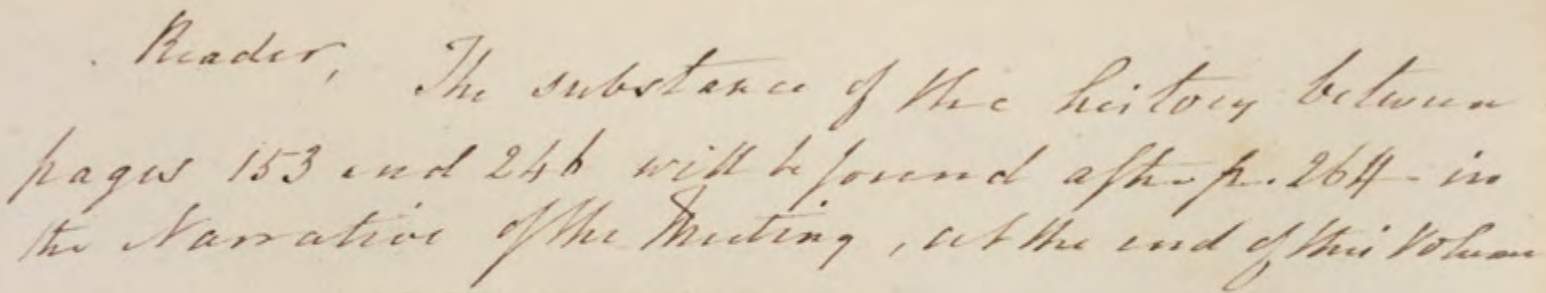 Reader, The substance of the history between
pages 153 and 246 will be found after p. 264 in
the Narrative of the Meeting, at the end of this Volume